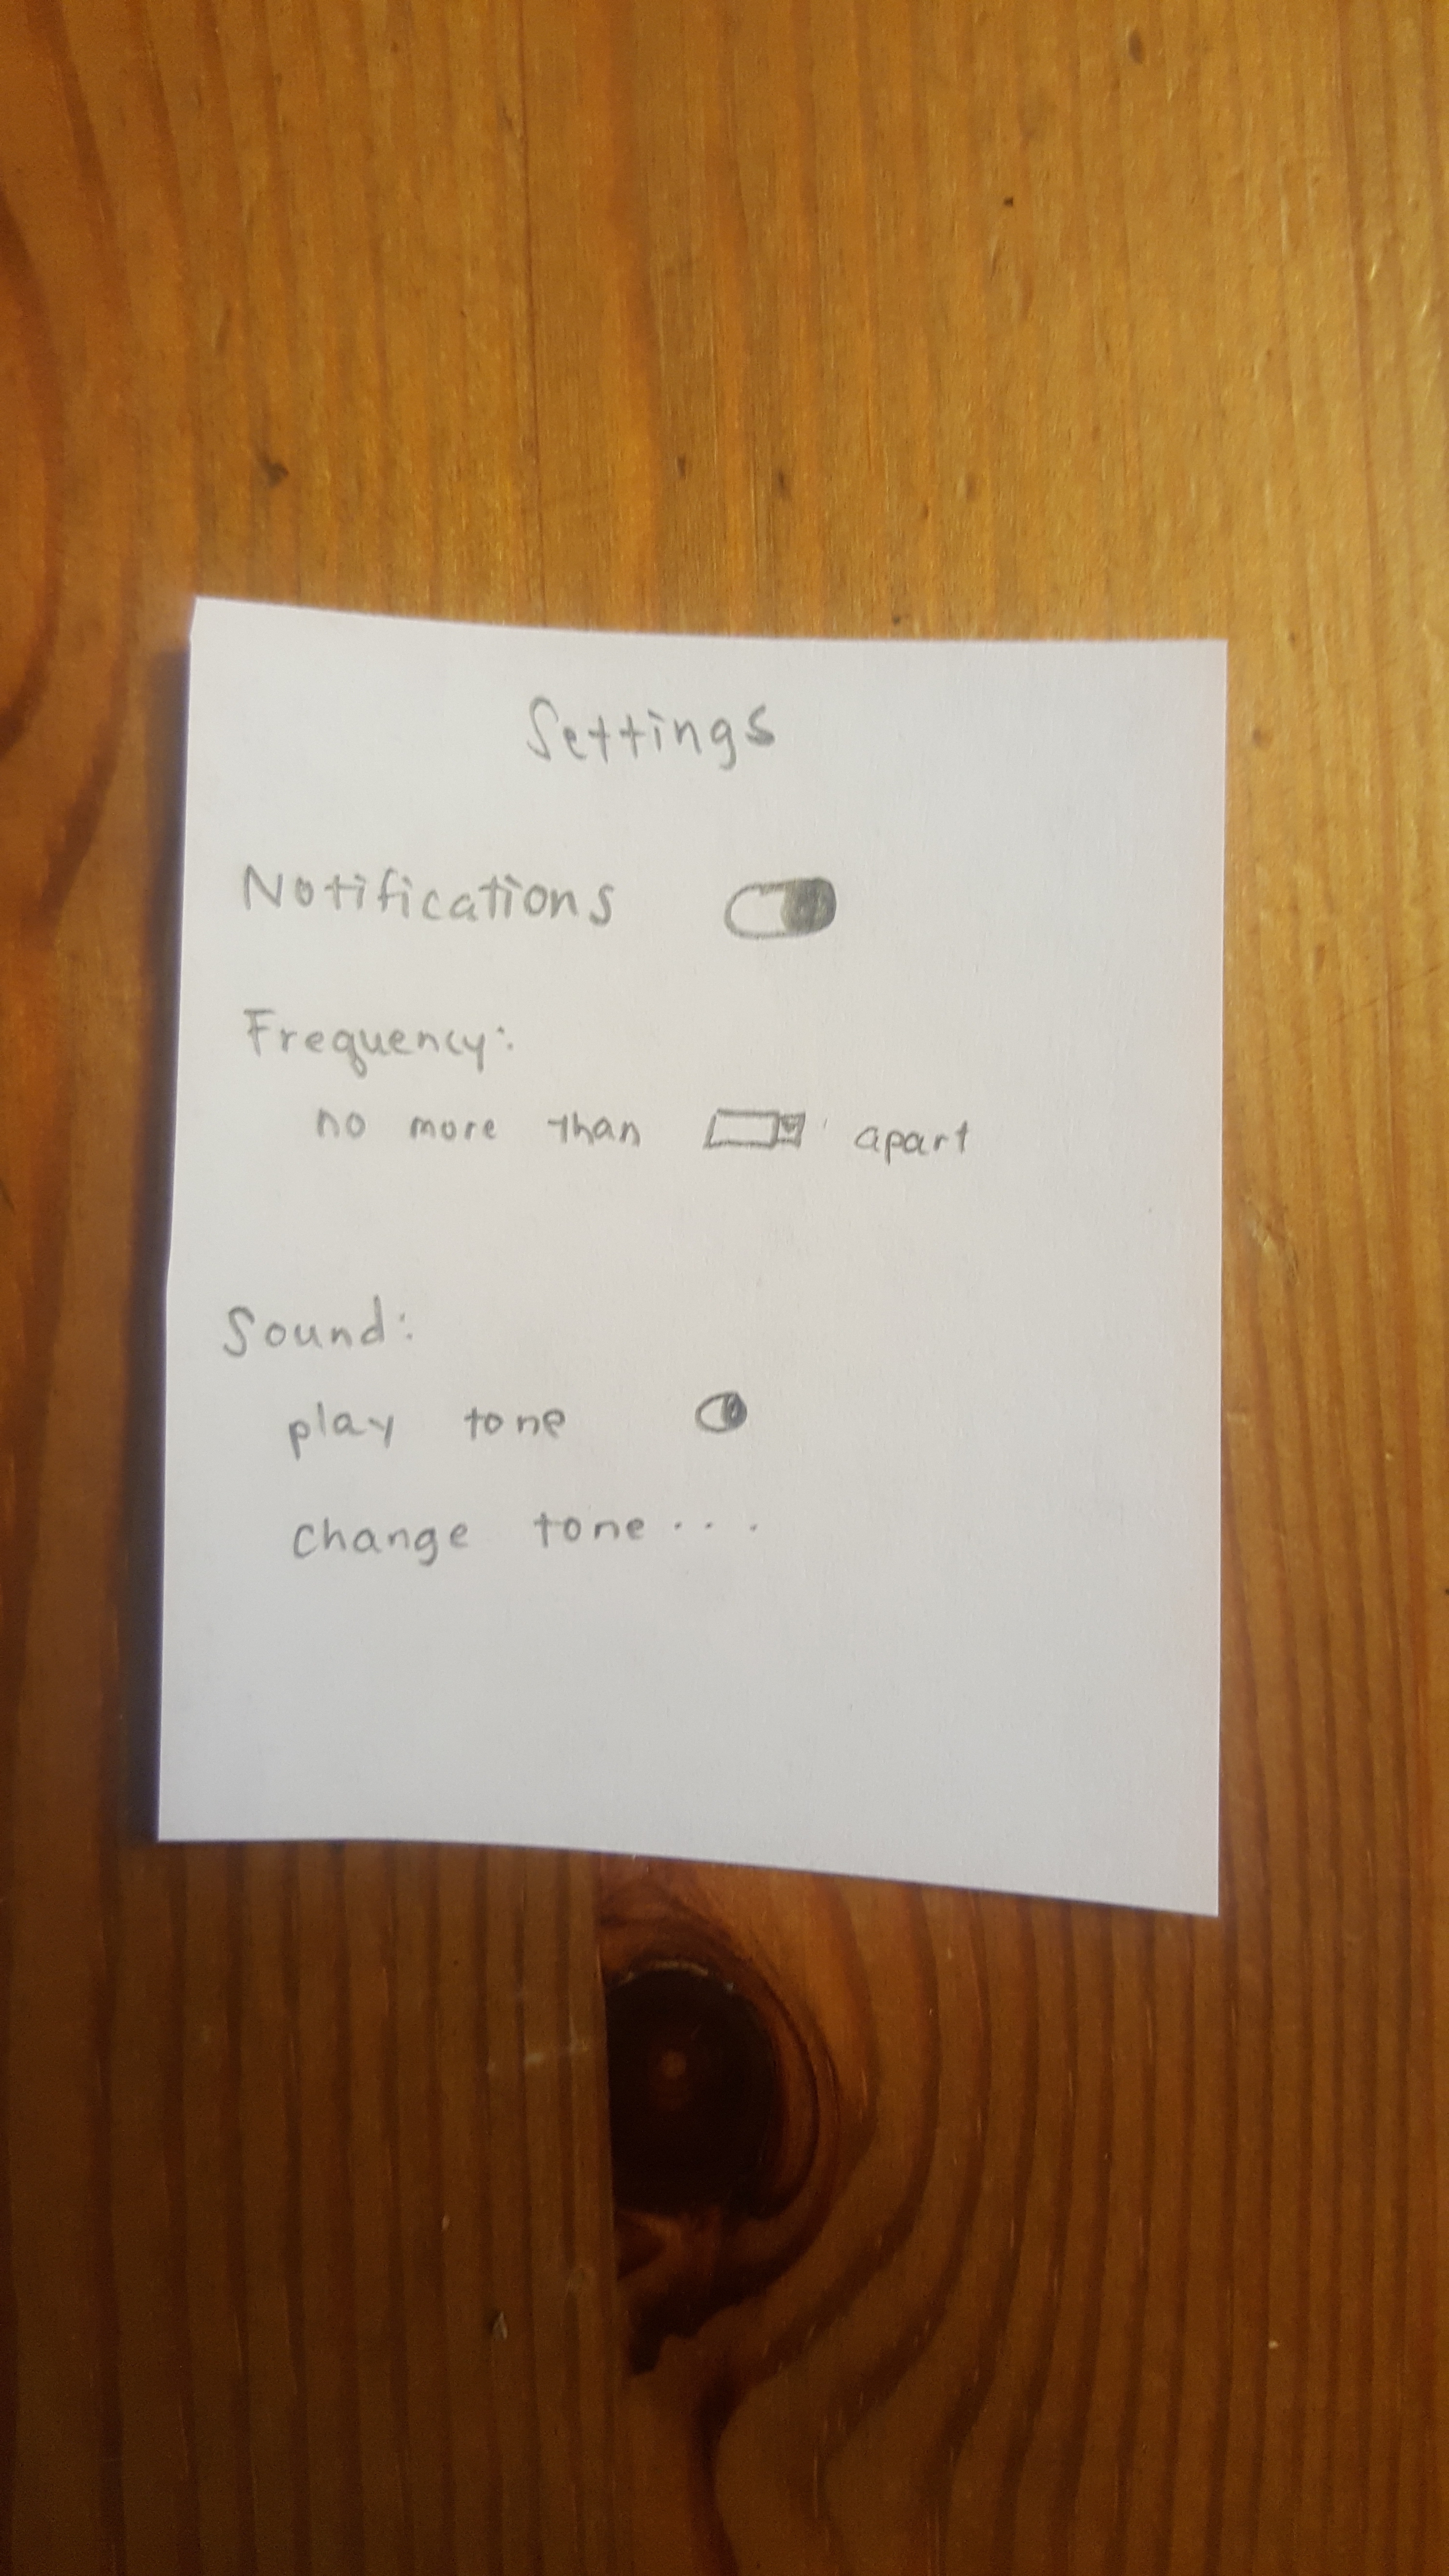 Settings
Notifications
Frequency:
no more than apart
Sound:
play tone
change tone...